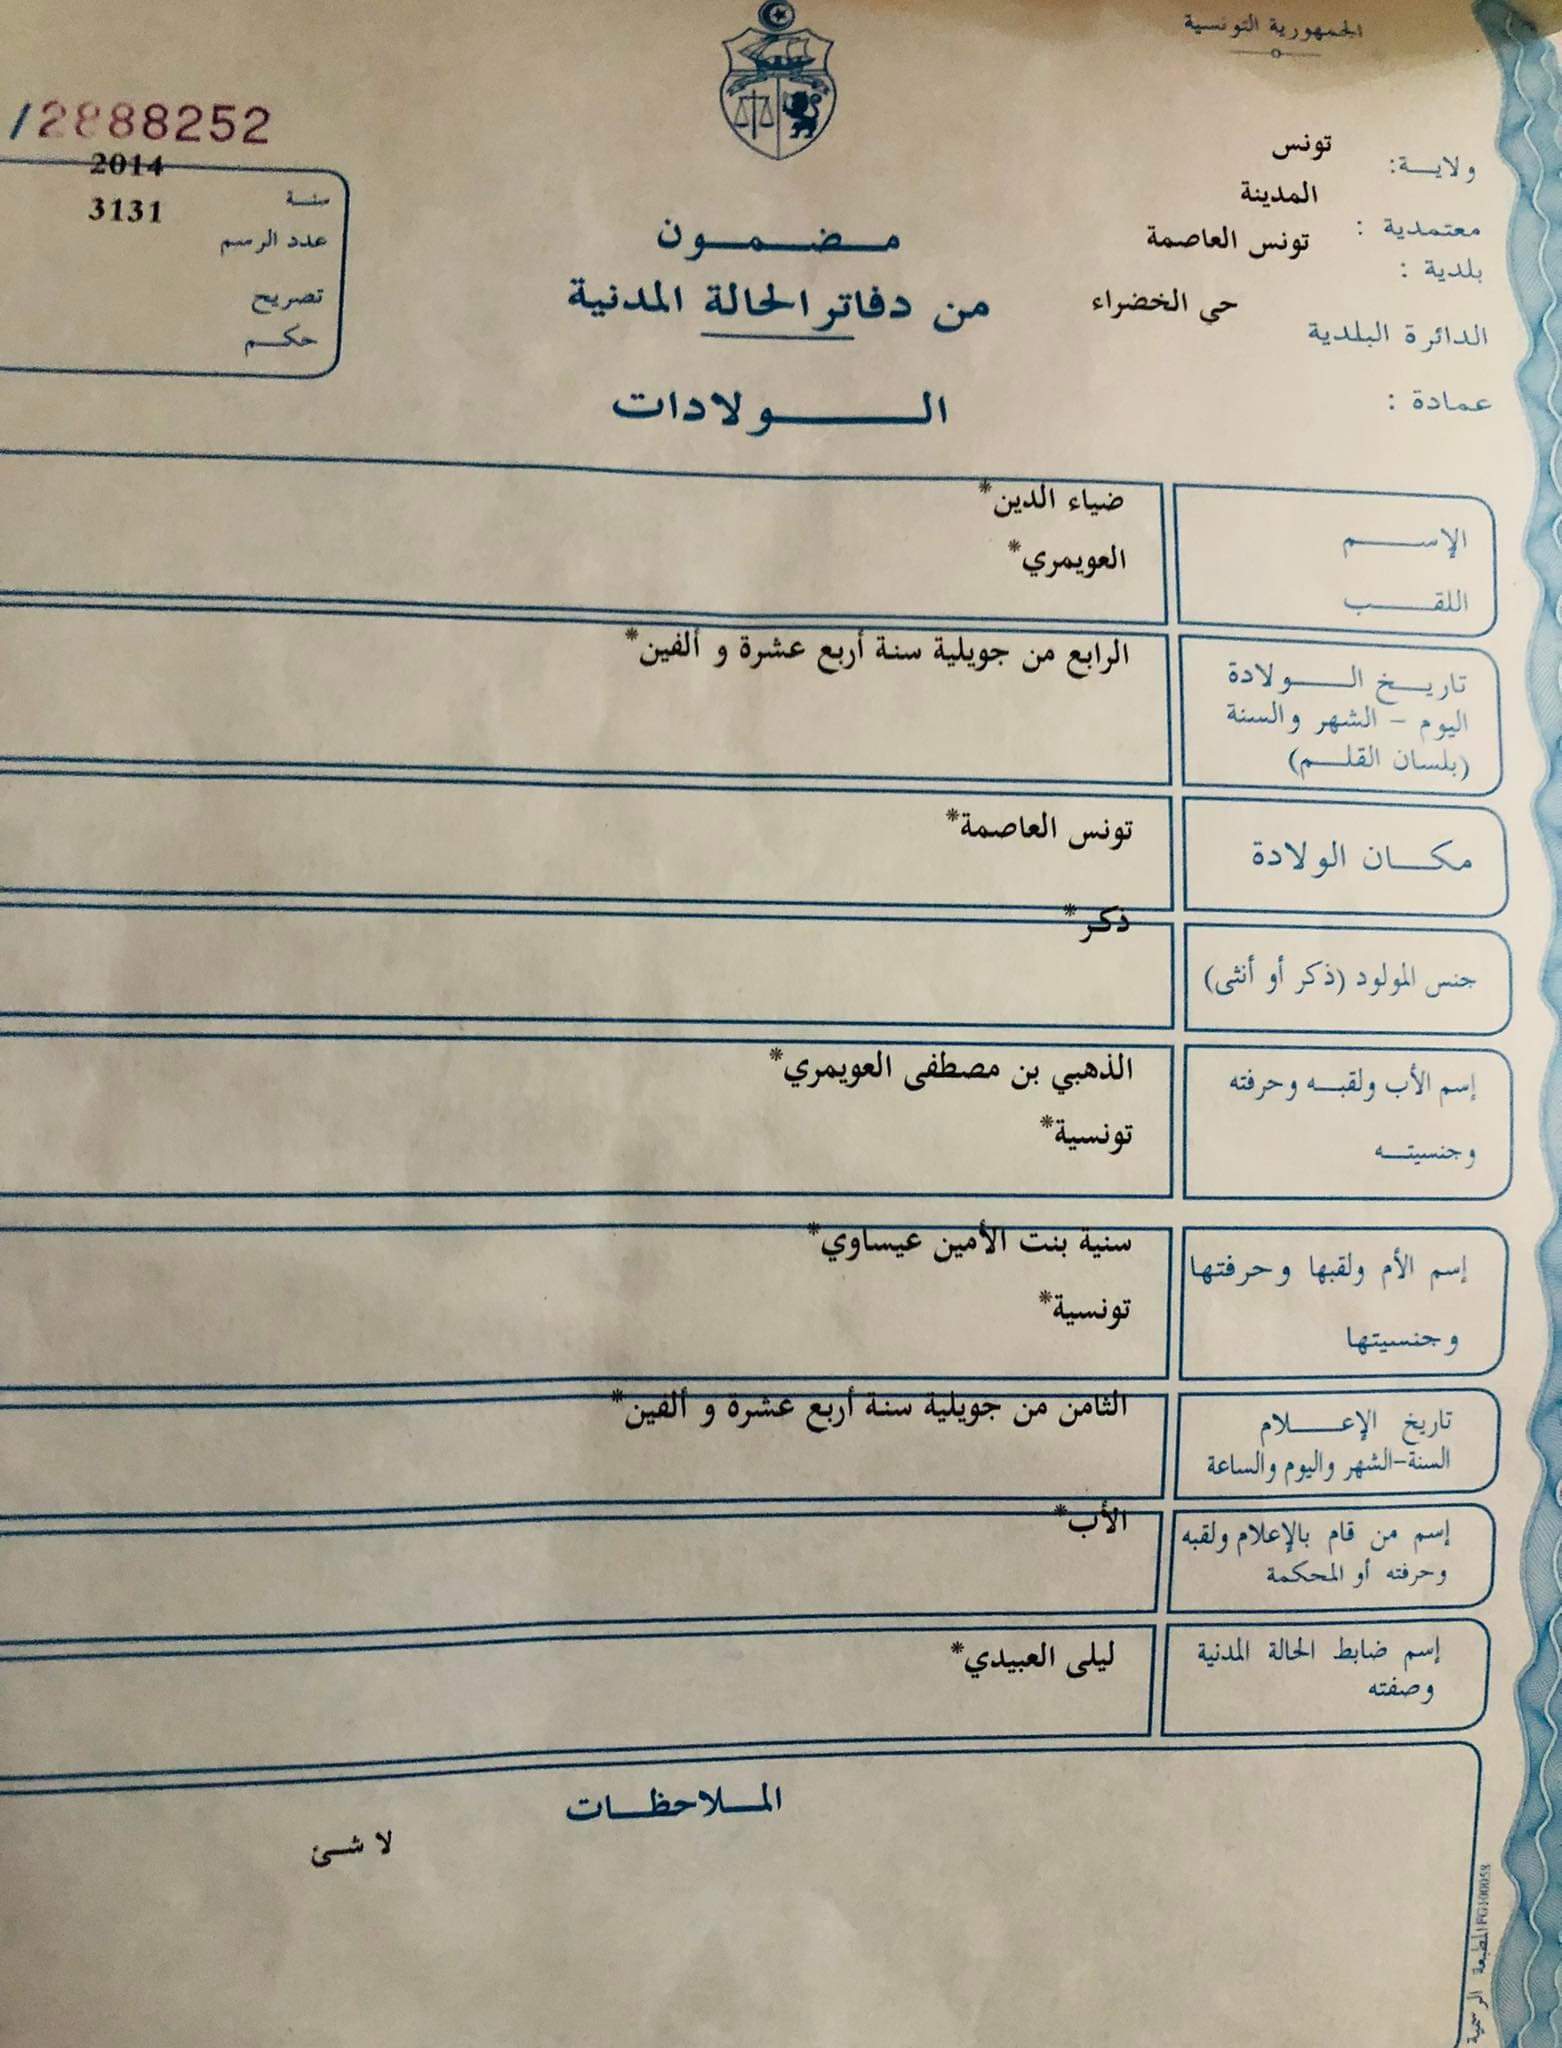 الجمهورية التونسية
ولايــة: تونس
معتمدية : المدينة
بلدية : تونس العاصمة
الدائرة البلدية حي الخضراء
عمادة :
/2888252
سنة 2014
عدد الرسم 3131
تصريح
حكم
مضمون
من دفاتر الحالة المدنية
الولادات
الإسم ضياء الدين*
اللقب العويمري*
تاريخ الولادة الرابع من جويلية سنة أربع عشرة و ألفين*
اليوم - الشهر والسنة
(بلسان القلم)
مكان الولادة تونس العاصمة*
جنس المولود (ذكر أو أنثى) ذكر*
إسم الأب ولقبه وحرفته الذهبي بن مصطفى العويمري*
وجنسيته تونسية*
إسم الأم ولقبها وحرفتها سنية بنت الأمين عيساوي*
وجنسيتها تونسية*
تاريخ الإعلام الثامن من جويلية سنة أربع عشرة و ألفين*
السنة-الشهر واليوم والساعة
إسم من قام بالإعلام ولقبه الأب*
وحرفته أو المحكمة
إسم ضابط الحالة المدنية ليلى العبيدي*
وصفته
الملاحظات
لا شئ
المطبعة الرسمية FG100058